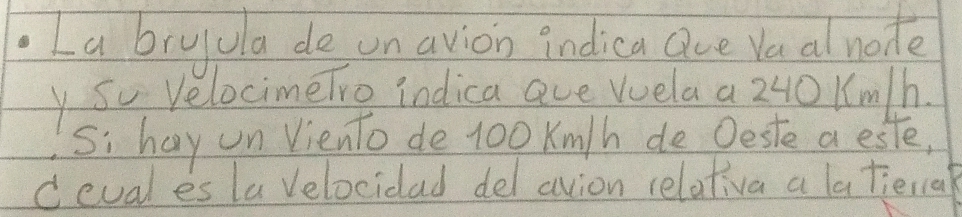 • La brujula de un avión indica Que Va al norte
y su Velocimetro indica Que Vuela a 240 Km/h.
Si hay un Viento de 100 Km/h de Oeste a este,
¿cual es la Velocidad del avion relativa a la Tierra?